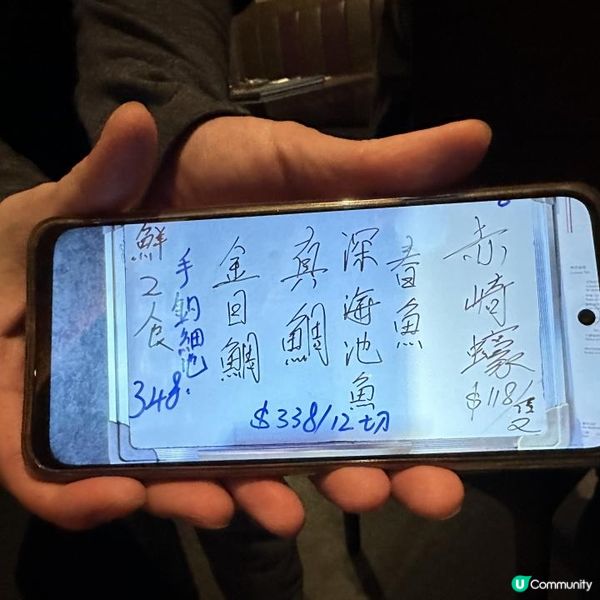 赤崎蠔
$118/隻
魚
深海池魚
真鯛
金目鯛
$338/12切
手釣
鮮2食
348.
Community